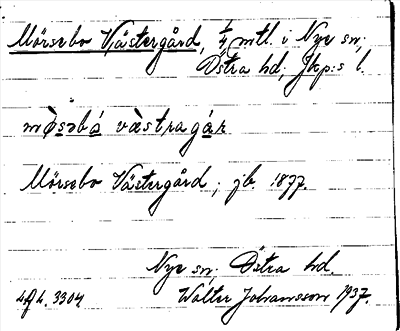 Mörsebo Västergård, 1/4 mtl. i Nye sn,
Östra hd, Jkp:s l.
mö̀səbó västragár
Mörsebo Västergård, jb 1877.
Nye sn, Östra hd.
Walter Johansson 1937.